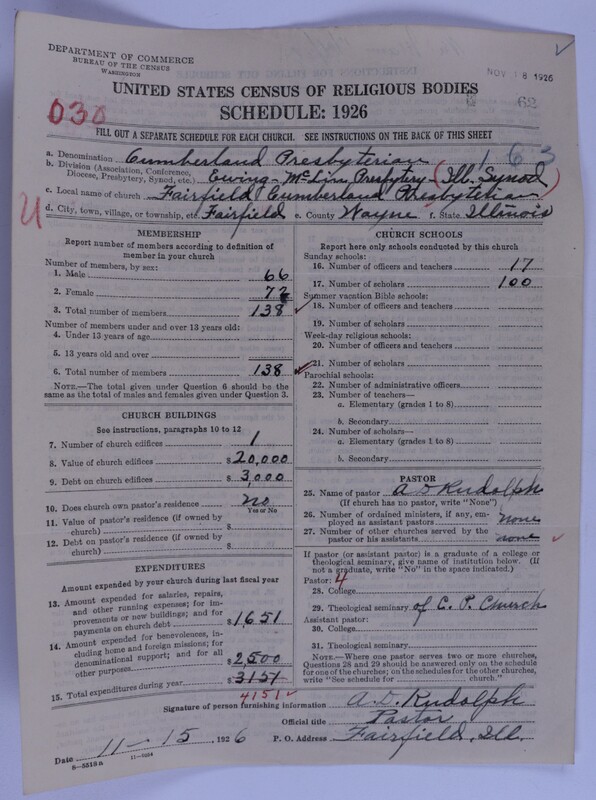 DEPARTMENT OF COMMERCE
BUREAU OF THE CENSUS
WASHINGTON
NOV 18 1926
UNITED STATES CENSUS OF RELIGIOUS BODIES
SCHEDULE: 1926
62
030
FILL OUT A SEPARATE SCHEDULE FOR EACH CHURCH. SEE INSTRUCTIONS ON THE BACK OF THIS SHEET
163
a. Denomination Cumberland Presbyterian
b. Division (Association, Conference, Diocese, Presbytery, Synod, etc.) Ewing-McLin Presbytery-(Ill. Synod)
c. Local name of church Fairfield Cumberland Presbyterian
d. City, town, village, or township, etc. Fairfield e. County Wayne f. State Illinois
U
MEMBERSHIP
Report number of members according to definition of member in your church
Number of members, by sex:
1. Male 66
2. Female 72
3. Total number of members 138
Number of members under and over 13 years old:
4. Under 13 years of age
5. 13 years old and over
6. Total number of members 138
NOTE.—The total given under Question 6 should be the same as the total of males and females given under Question 3.
CHURCH BUILDINGS
See instructions, paragraphs 10 to 12
7. Number of church edifices 1
8. Value of church edifices $20,000
9. Debt on church edifices $3,000
10. Does church own pastor's residence? no
Yes or No
11. Value of pastor's residence (if owned by church) $
12. Debt on pastor's residence (if owned by church) $
EXPENDITURES
Amount expended by your church during last fiscal year
13. Amount expended for salaries, repairs, and other running expenses; for improvements or new buildings; and for payments on church debt $1651
14. Amount expended for benevolences, including home and foreign missions; for denominational support; and for all other purposes $2,500
15. Total expenditures during year $3151
4151
CHURCH SCHOOLS
Report here only schools conducted by this church
Sunday schools:
16. Number of officers and teachers 17
17. Number of scholars 100
Summer vacation Bible schools:
18. Number of officers and teachers
19. Number of scholars
Week-day religious schools:
20. Number of officers and teachers
21. Number of scholars
Parochial schools:
22. Number of administrative officers
23. Number of teachers—
a. Elementary (grades 1 to 8)
b. Secondary
24. Number of scholars—
a. Elementary (grades 1 to 8)
b. Secondary
PASTOR
25. Name of pastor A D Rudolph
(If church has no pastor, write "None")
26. Number of ordained ministers, if any, employed as assistant pastors none
27. Number of other churches served by the pastor or his assistants none
If pastor (or assistant pastor) is a graduate of a college or theological seminary, give name of institution below. (If not a graduate, write "No" in the space indicated.)
Pastor: 4
28. College
29. Theological seminary of C. P. Church
Assistant pastor:
30. College
31. Theological seminary
NOTE.—Where one pastor serves two or more churches, Questions 28 and 29 should be answered only on the schedule for one of the churches; on the schedules for the other churches, write "See schedule for church."
Signature of person furnishing information A. D. Rudolph
Official title Pastor
Date 11-15, 1926 P. O. Address Fairfield, Ill.
8—5518a